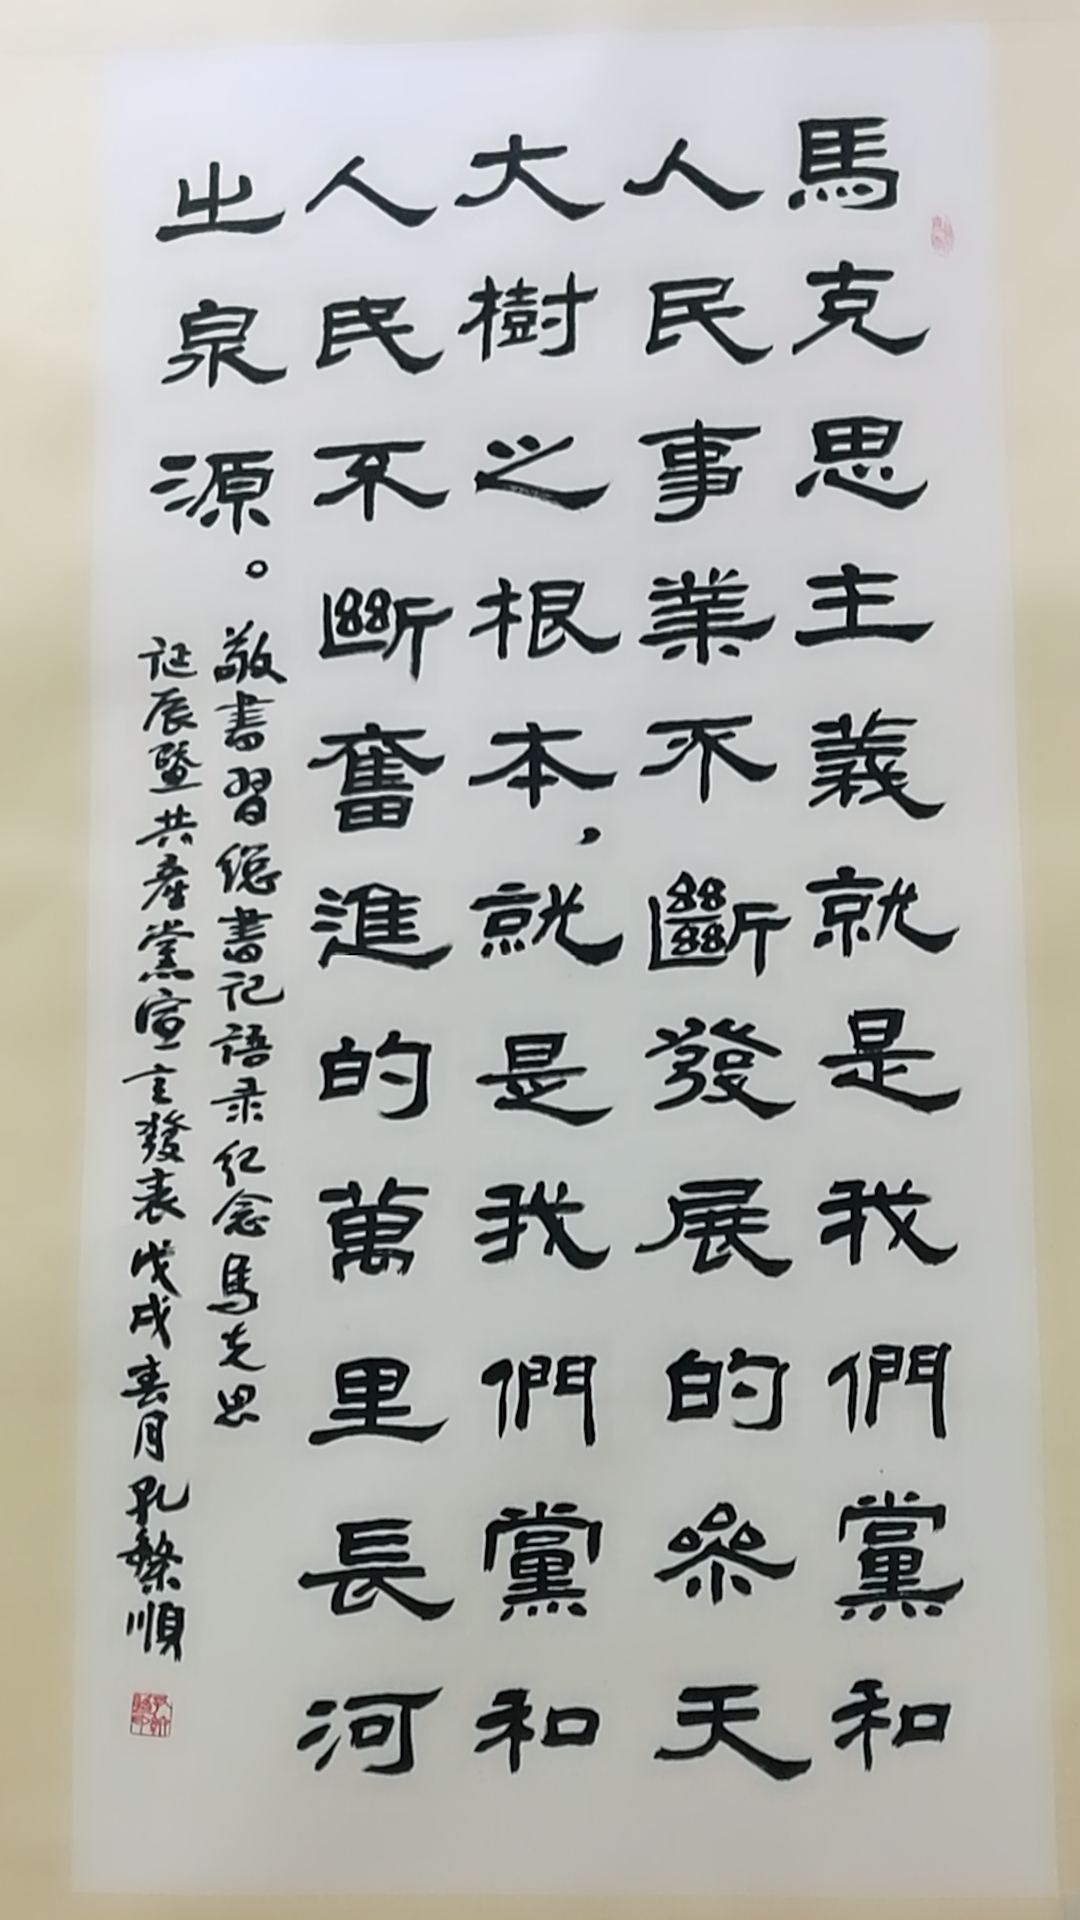 馬克思主義就是我們黨和
人民事業不斷發展的參天
大樹之根本，就是我們黨和
人民不斷奮進的萬里長河
之泉源。
敬書習總書記語录紀念馬克思
誕辰暨共產黨宣言發表戊戌春月孔繁順